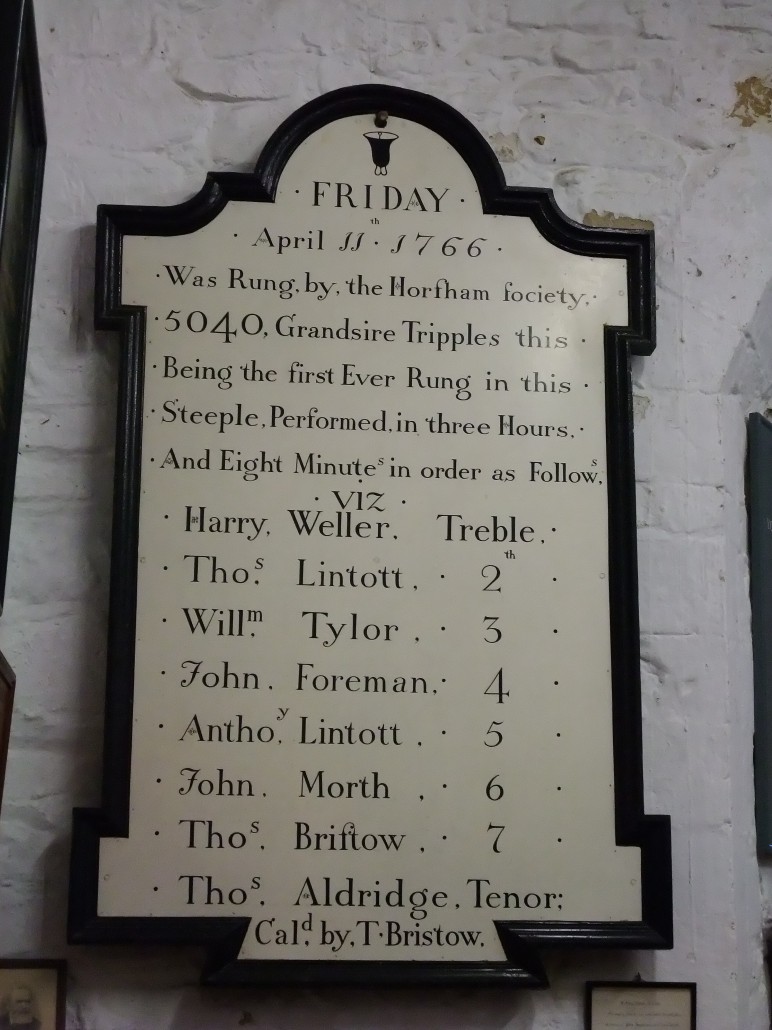 · FRIDAY ·
· April 11th · 1766 ·
· Was Rung, by, the Horſham ſociety, ·
· 5040, Grandsire Tripples this ·
· Being the first Ever Rung in this ·
· Steeple, Performed, in three Hours, ·
· And Eight Minutes in order as Follows,
· VIZ ·
· Harry, Weller, Treble, ·
· Thos, Lintott, · 2th ·
· Willm, Tylor, · 3 ·
· John, Foreman, · 4 ·
· Anthoy, Lintott, · 5 ·
· John, Morth, · 6 ·
· Thos, Briſtow, · 7 ·
· Thos, Aldridge, Tenor;
Cald, by, T·Bristow,